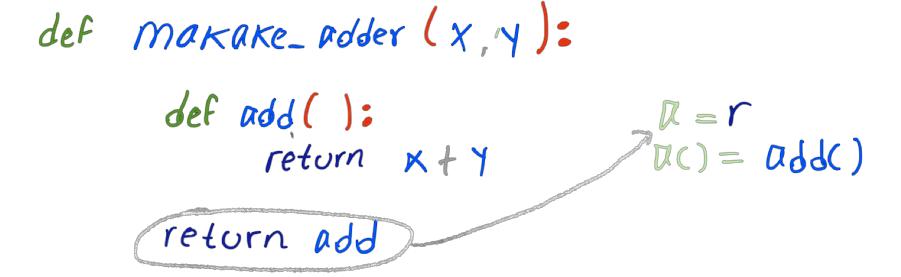 def makake_adder (x, y):
def add( ):
return x + y
return add
a = r
a() = add()